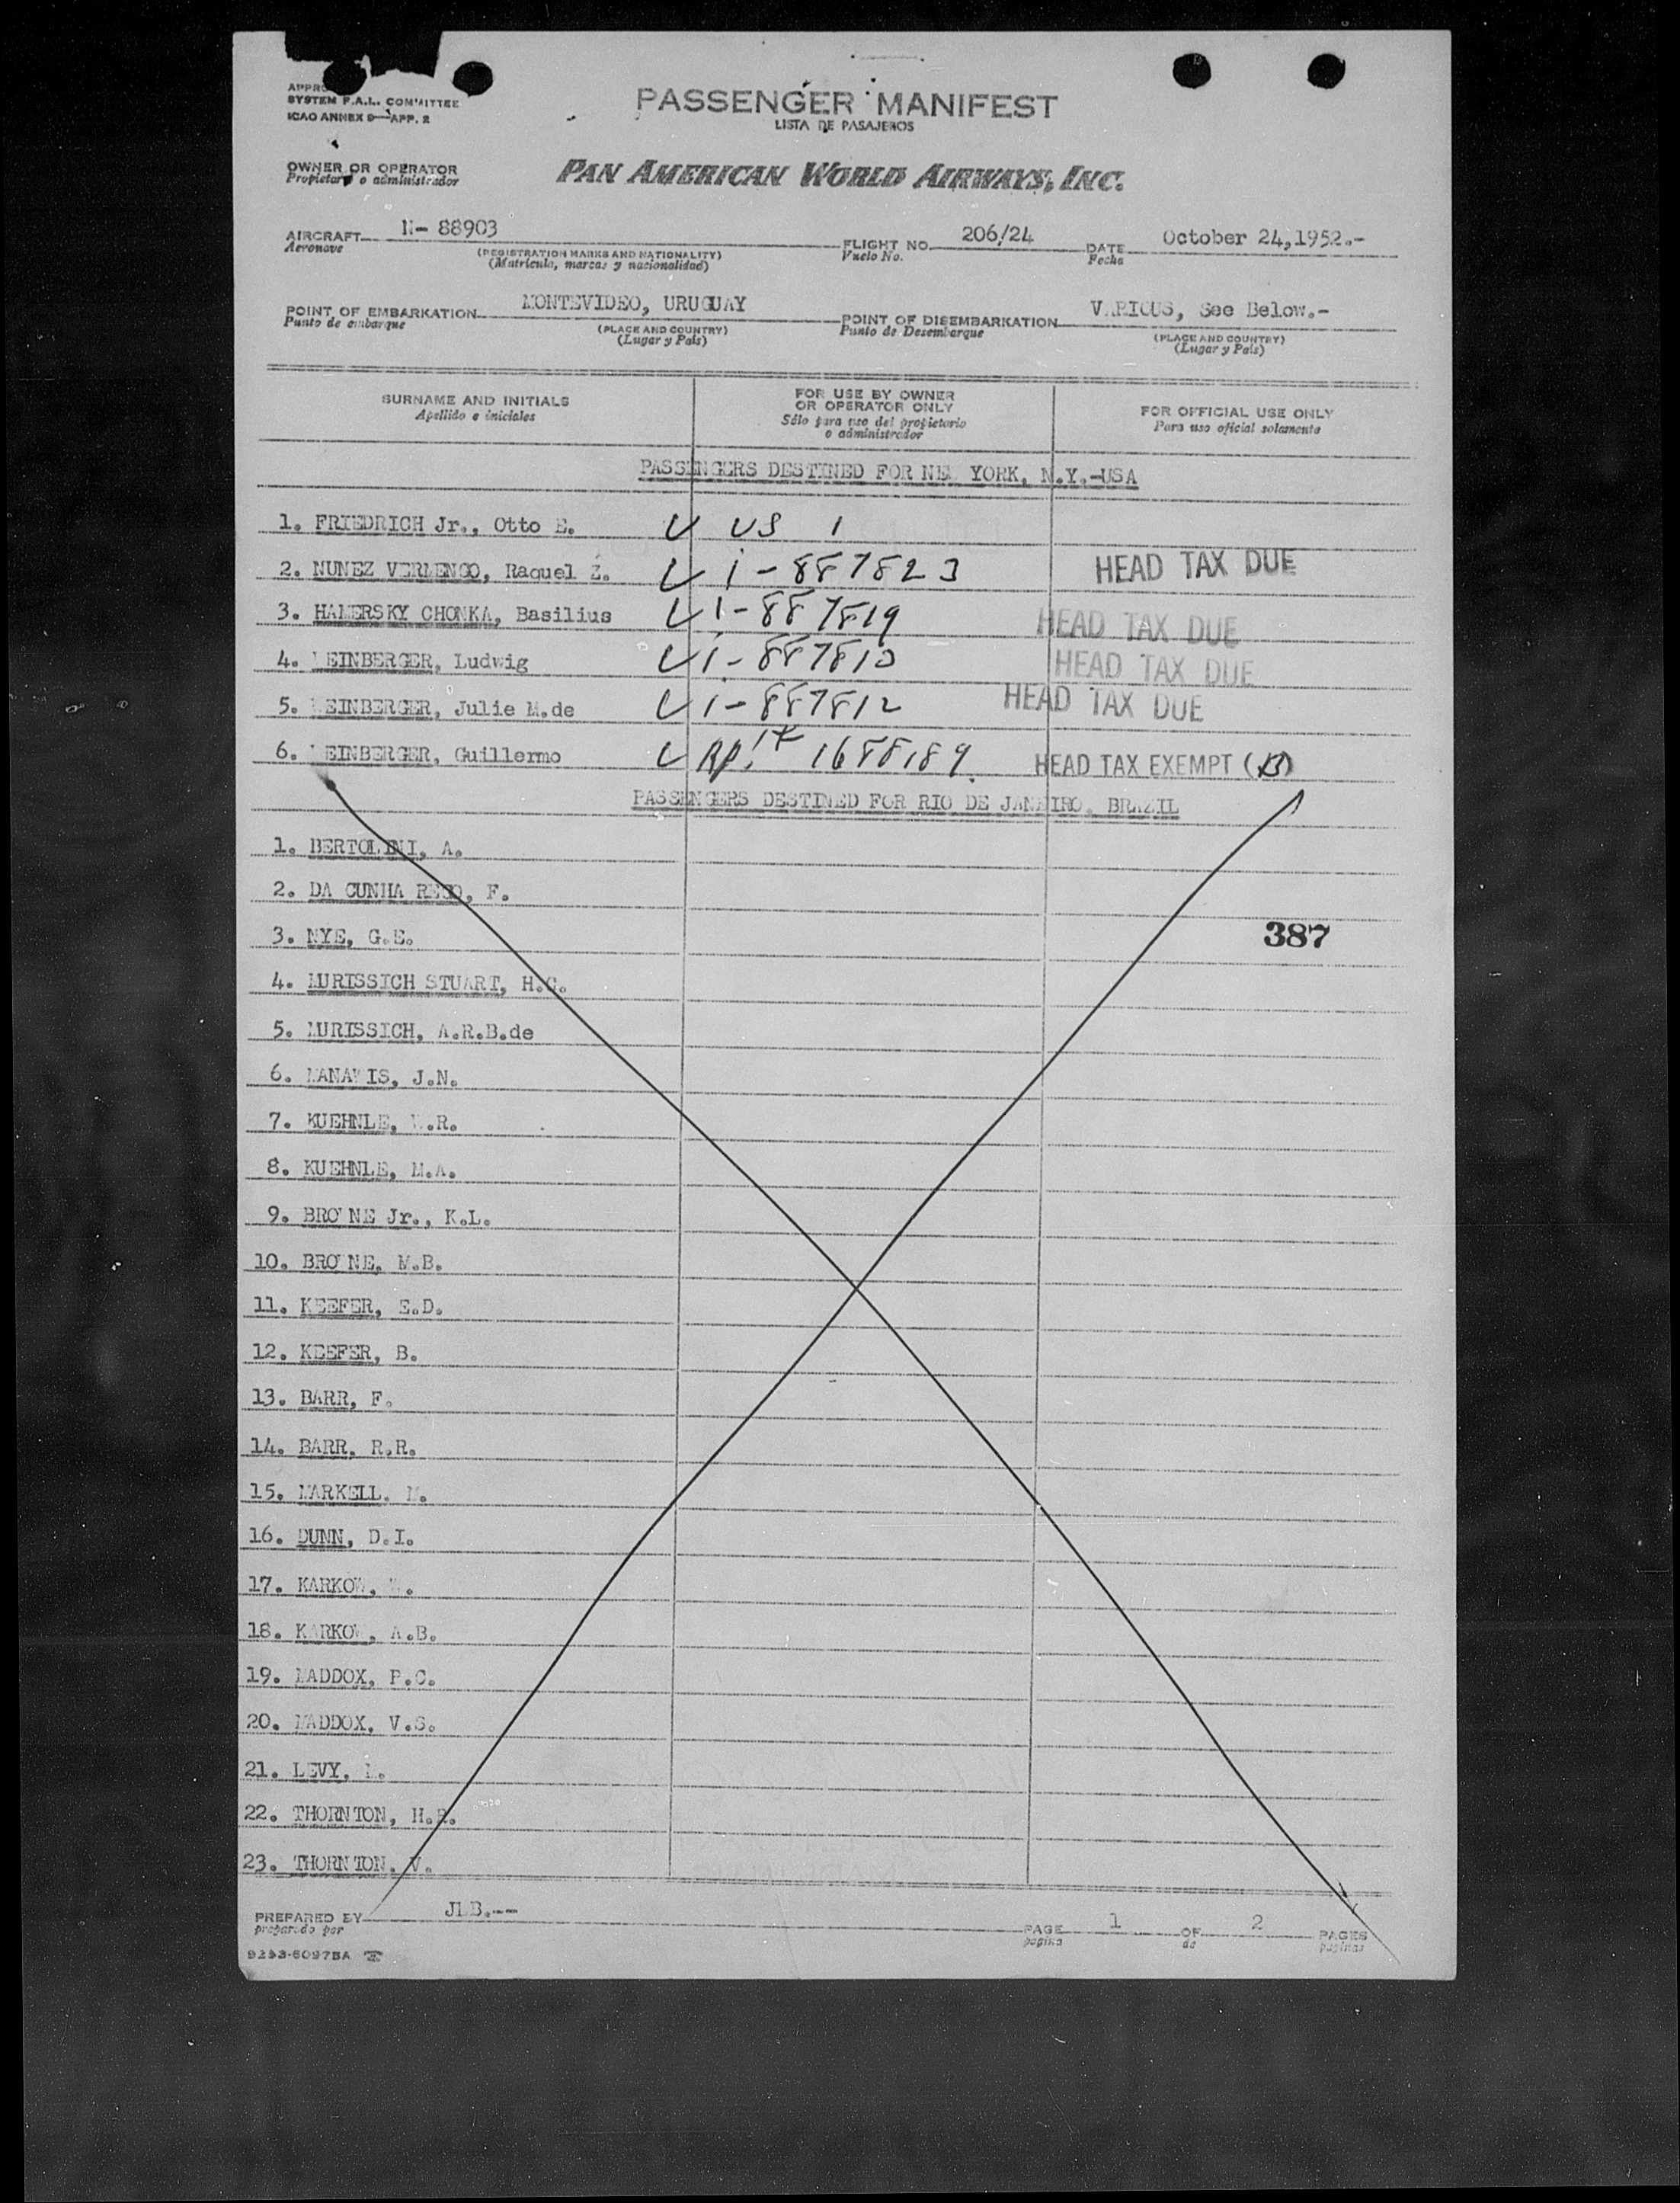 SYSTEM P.A.L. COMMITTEE
ICAO ANNEX 9—APP. 2
PASSENGER MANIFEST
LISTA DE PASAJEROS
OWNER OR OPERATOR
Propietario o administrador
PAN AMERICAN WORLD AIRWAYS, INC.
AIRCRAFT N- 88903 FLIGHT NO. 206/24 DATE October 24,1952.-
Aeronave (REGISTRATION MARKS AND NATIONALITY) Vuelo No. Fecha
(Matrícula, marcas y nacionalidad)
POINT OF EMBARKATION MONTEVIDEO, URUGUAY POINT OF DISEMBARKATION VARIOUS, See Below.-
Punto de embarque (PLACE AND COUNTRY) Punto de Desembarque (PLACE AND COUNTRY)
(Lugar y País) (Lugar y País)
SURNAME AND INITIALS FOR USE BY OWNER OR OPERATOR ONLY FOR OFFICIAL USE ONLY
Apellido e iniciales Sólo para uso del propietario o administrador Para uso oficial solamente
PASSENGERS DESTINED FOR NEW YORK, N.Y.-USA
1. FRIEDRICH Jr., Otto E. US 1
2. NUNEZ VERLENGO, Raquel 1-887823 HEAD TAX DUE
3. HAMERSKY CHONKA, Basilius 1-887819 HEAD TAX DUE
4. WEINBERGER, Ludwig 1-887810 HEAD TAX DUE
5. WEINBERGER, Julie M.de 1-887812 HEAD TAX DUE
6. WEINBERGER, Guillermo 1688189 HEAD TAX EXEMPT (B)
PASSENGERS DESTINED FOR RIO DE JANEIRO, BRAZIL
1. BERTOLINI, A.
2. DA CUNHA REGO, F.
3. NYE, G.E.
387
4. MURISSICH STUART, H.C.
5. MURISSICH, A.R.B.de
6. J.N.
7. KUEHNLE, W.R.
8. KUEHNLE, M.A.
9. BROWNE Jr., K.L.
10. BROWNE, M.B.
11. KEEFER, E.D.
12. KEEFER, B.
13. BARR, F.
14. BARR, R.R.
15. MARKELL, M.
16. DUNN, D.I.
17. KARKOW, W.
18. KARKOW, A.B.
19. MADDOX, P.C.
20. MADDOX, V.S.
21. LEVY,
22. THORNTON, H.R.
23. THORNTON, V.
PREPARED BY JLB.-- PAGE 1 OF 2 PAGES
preparado por pagina de paginas
9293-6097BA